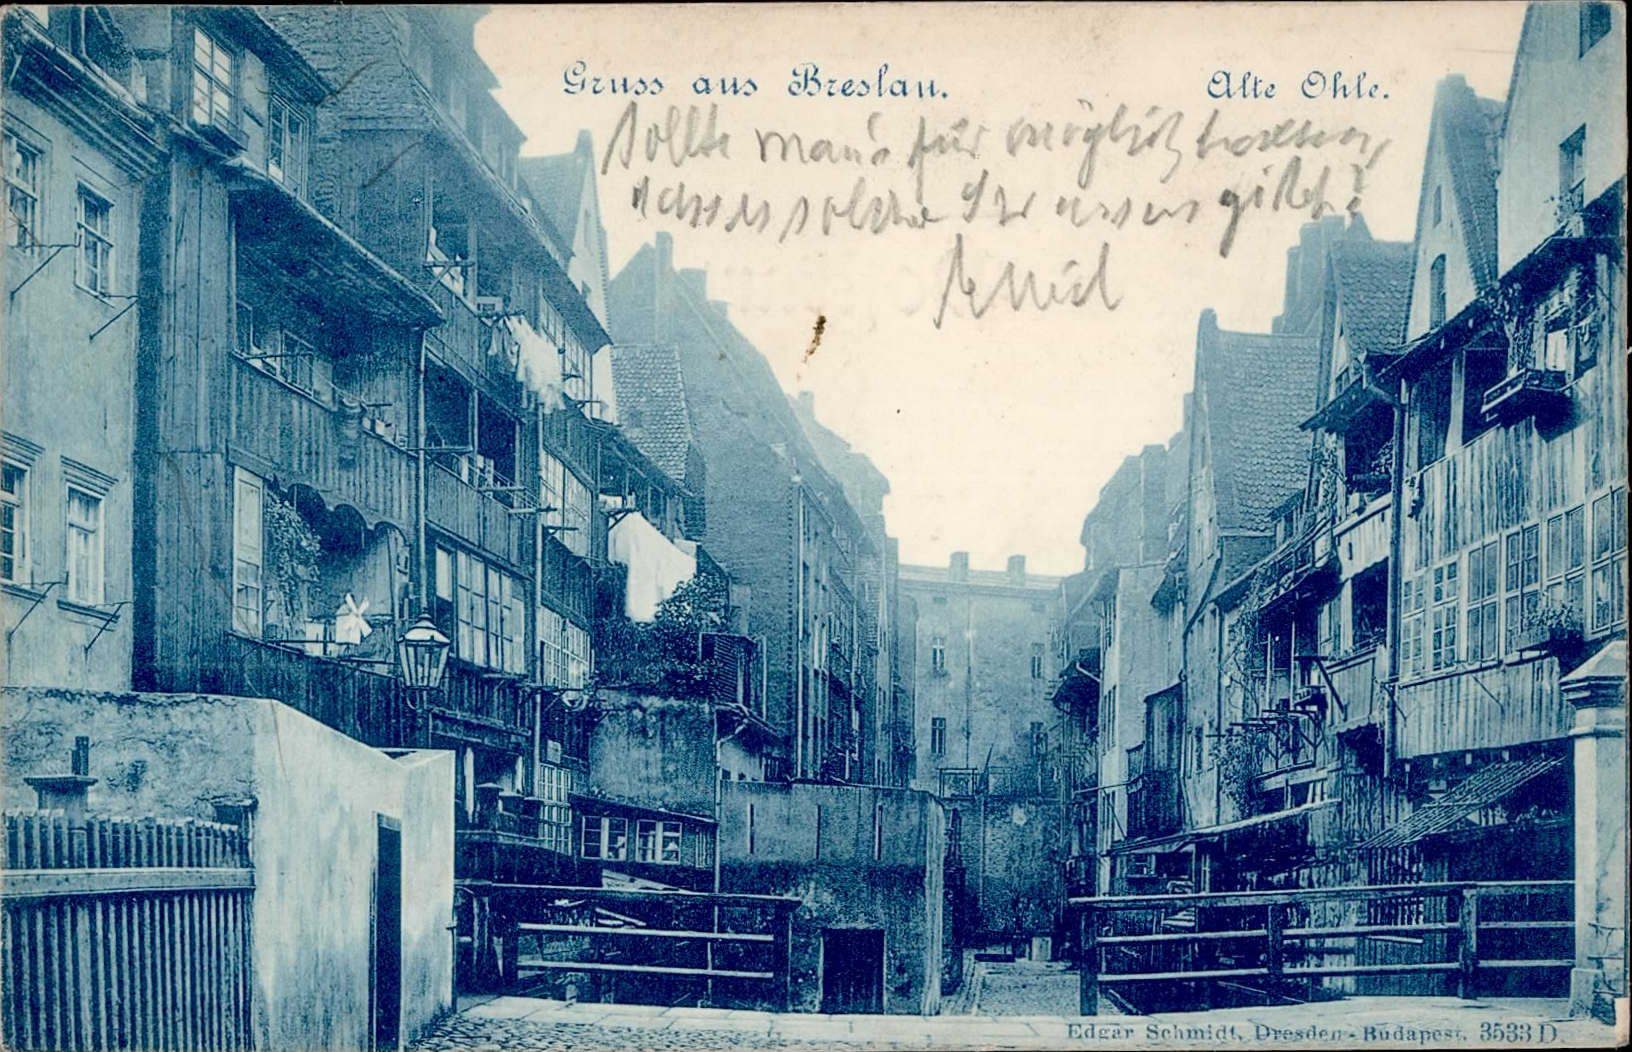 Gruss aus Breslau. Alte Ohle.
Sollte man's für möglich halten,
dass es solche
giebt?
Edgar Schmidt, Dresden-Budapest. 3533 D.